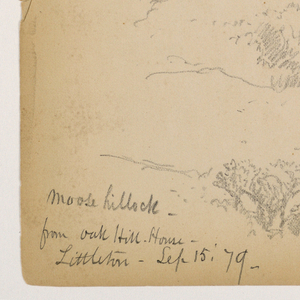 Moosehillock -
from oak Hill-House -
Littleton - Sep 15: 79 -